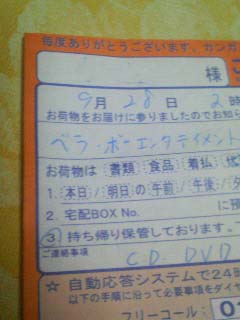 毎度ありがとうございます。カンガ
様
9月28日 2時
お荷物をお届けに参りましたのでお知
ベラ・ボーエンタテイメント
お荷物は 書類 食品 着払
1. 本日/明日の午前/午後/
2. 宅配BOX No. に預
3. 持ち帰り保管しております。
ご連絡事項
CD. DVD
☆ 自動応答システムで24時
以下の手順に沿って必要事項をダイヤ
フリーコール: 0